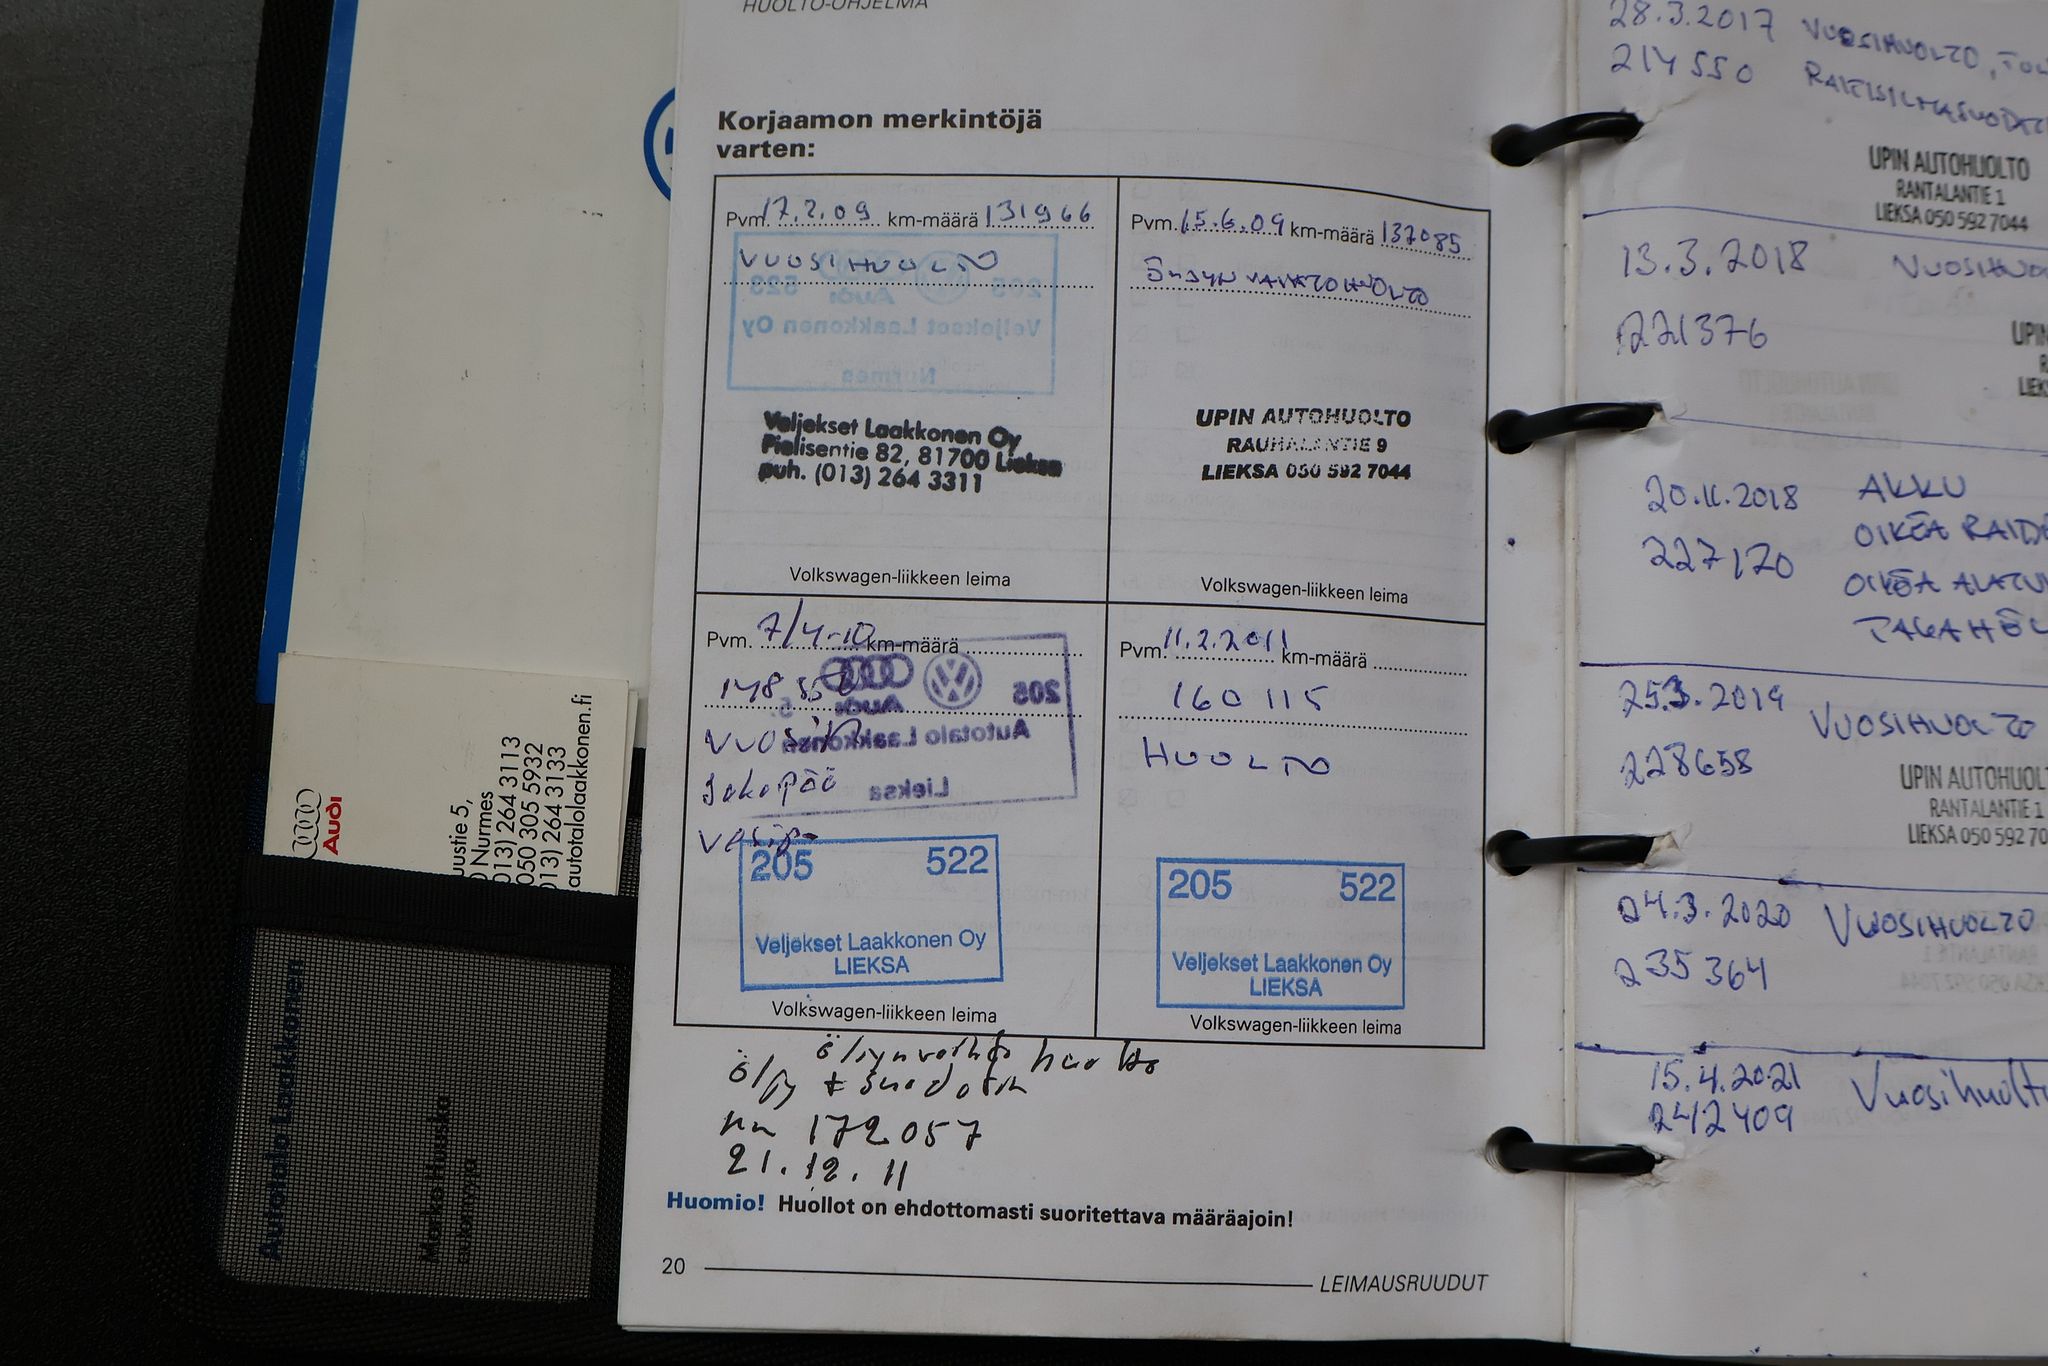 HUOLTO-OHJELMA
Korjaamon merkintöjä
varten:
Pvm. 17.2.09 km-määrä 131966
VUOSIHUOLTO
205 523
Audi
Veljekset Laakkonen Oy
Nurmes
Veljekset Laakkonen Oy
Pielisentie 82, 81700 Lieksa
puh. (013) 264 3311
Volkswagen-liikkeen leima
Pvm. 15.6.09 km-määrä 137085
UPIN AUTOHUOLTO
RAUHALANTIE 9
LIEKSA 050 592 7044
Volkswagen-liikkeen leima
Pvm. 7/4-10 km-määrä
205
Audi
Autotalo Laakkonen
Lieksa
Jakopää
205 522
Veljekset Laakkonen Oy
LIEKSA
Volkswagen-liikkeen leima
Pvm. 11.2.2011 km-määrä
160 115
HUOLTO
205 522
Veljekset Laakkonen Oy
LIEKSA
Volkswagen-liikkeen leima
öljynvaihto huolto
öljy + suodatin
km 172 057
21.12.11
Huomio! Huollot on ehdottomasti suoritettava määräajoin!
20 LEIMAUSRUUDUT
28.3.2017 VUOSIHUOLTO,
214550
UPIN AUTOHUOLTO
RANTALANTIE 1
LIEKSA 050 592 7044
13.3.2018
221376
20.11.2018 AKKU
227170 OIKEA
OIKEA
25.3.2019 VUOSIHUOLTO
228658
UPIN
RANTALANTIE 1
LIEKSA 050 592
24.3.2020 VUOSIHUOLTO
235364
15.4.2021 Vuosihuolto
242409
Audi
Nurmes
013) 264 3113
050 305 5932
013) 264 3133
autotalolaakkonen.fi
Autotalo Laakkonen
Marko Huusko
automyyjä